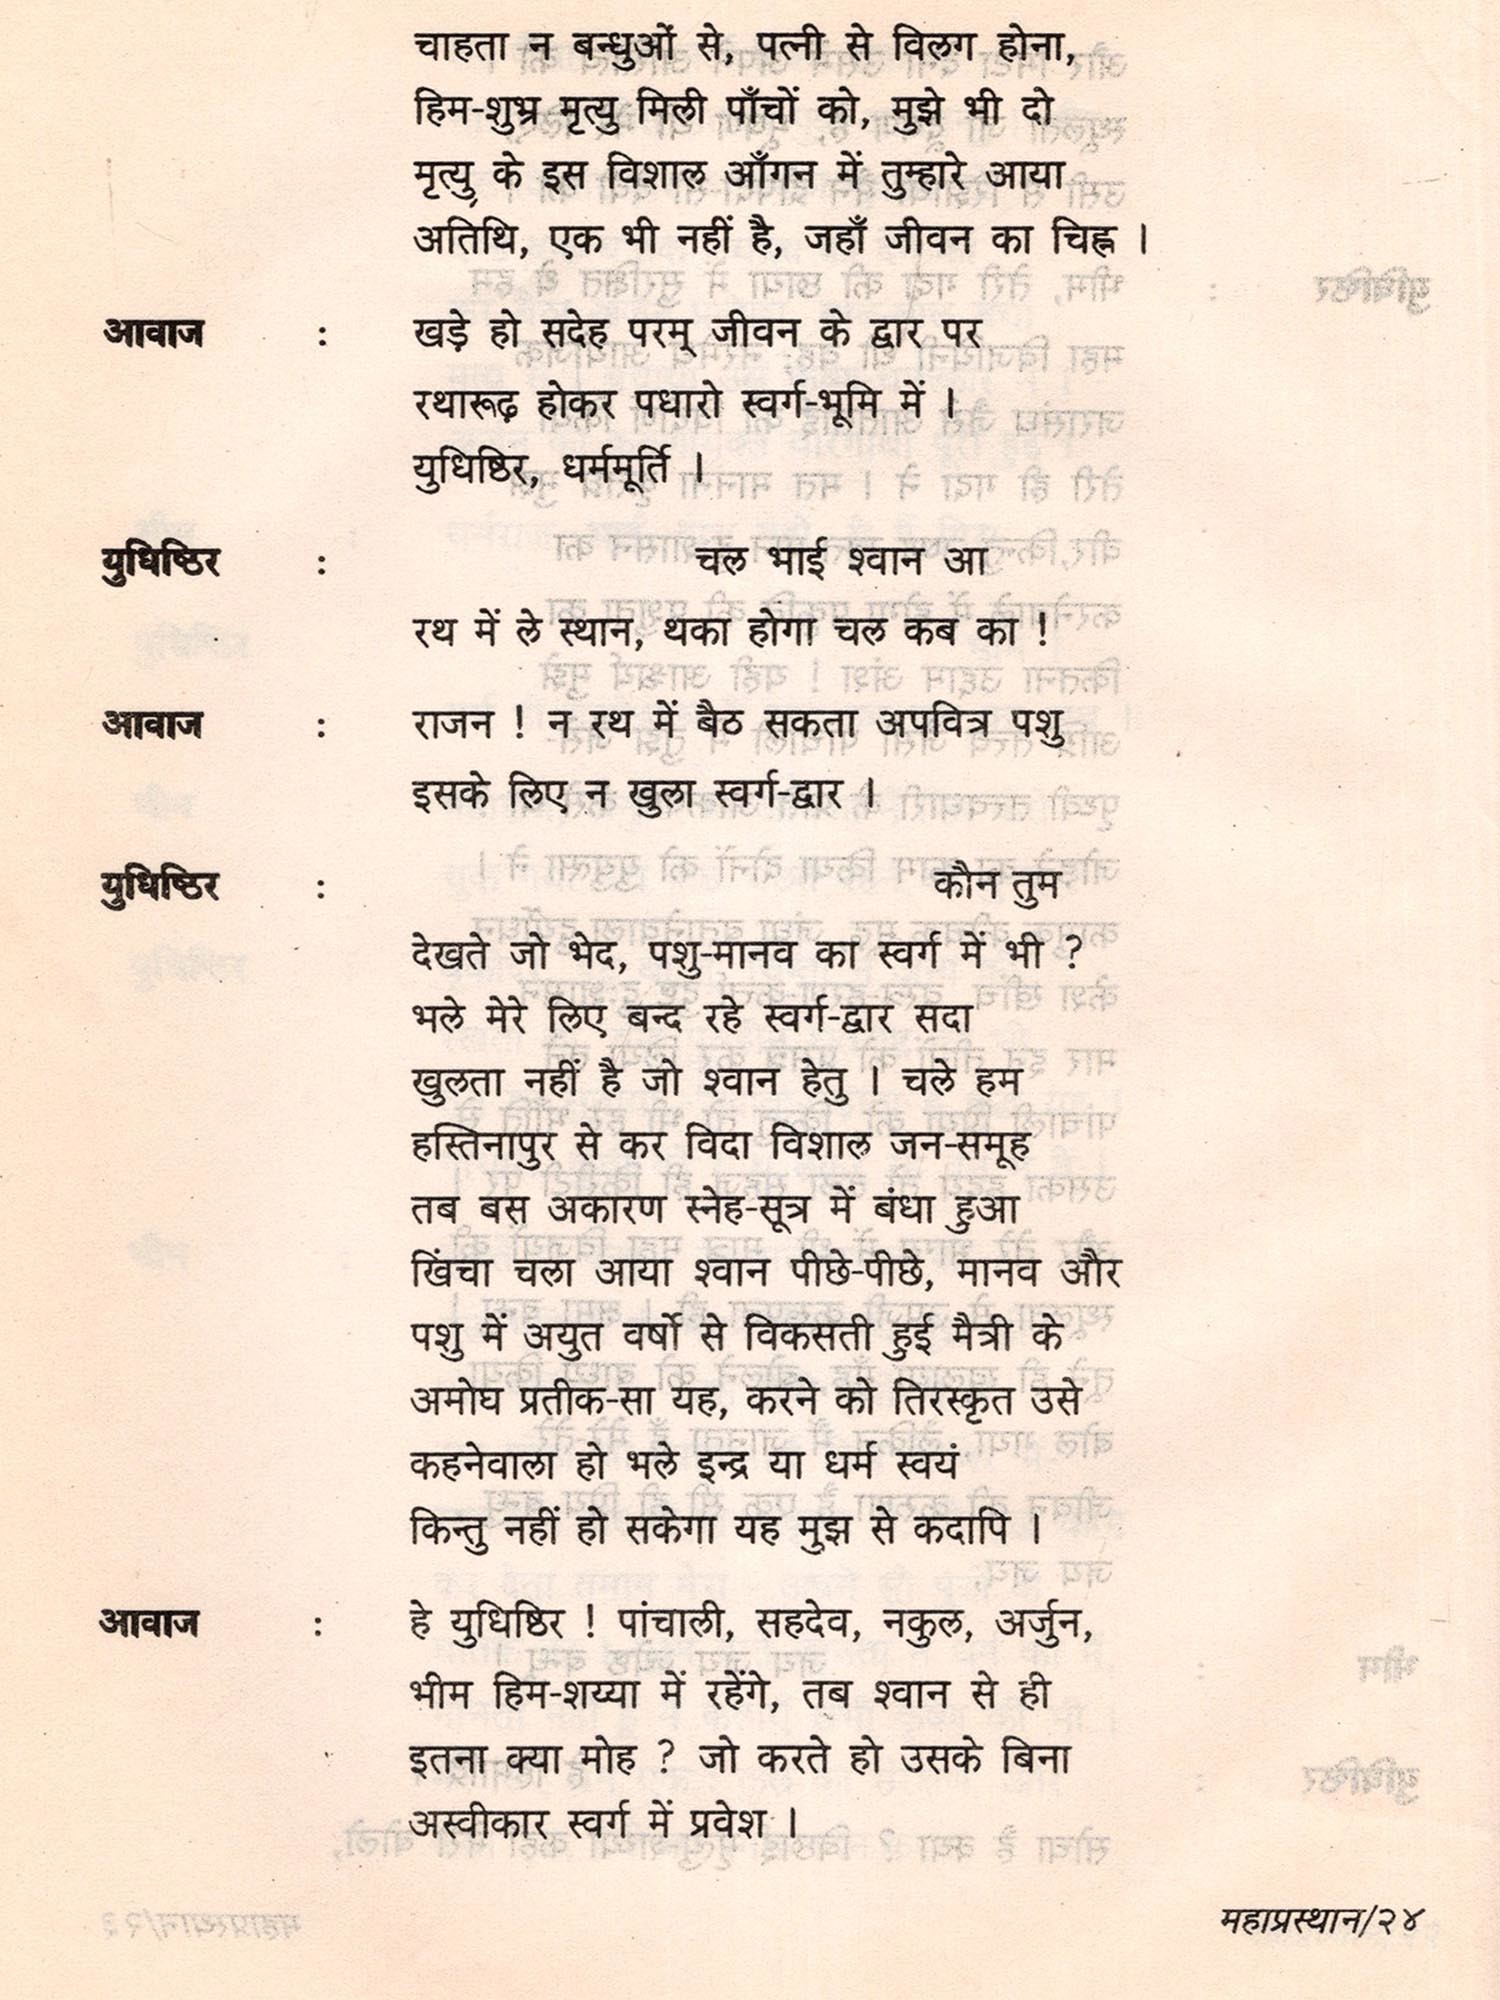 चाहता न बन्धुओं से, पत्नी से विलग होना,
हिम-शुभ्र मृत्यु मिली पाँचों को, मुझे भी दो
मृत्यु, के इस विशाल आँगन में तुम्हारे आया
अतिथि, एक भी नहीं है, जहाँ जीवन का चिह्न ।
आवाज : खड़े हो सदेह परम् जीवन के द्वार पर
रथारूढ़ होकर पधारो स्वर्ग-भूमि में ।
युधिष्ठिर, धर्ममूर्ति ।
युधिष्ठिर : चल भाई श्वान आ
रथ में ले स्थान, थका होगा चल कब का !
आवाज : राजन ! न रथ में बैठ सकता अपवित्र पशु
इसके लिए न खुला स्वर्ग-द्वार ।
युधिष्ठिर : कौन तुम
देखते जो भेद, पशु-मानव का स्वर्ग में भी ?
भले मेरे लिए बन्द रहे स्वर्ग-द्वार सदा
खुलता नहीं है जो श्वान हेतु । चले हम
हस्तिनापुर से कर विदा विशाल जन-समूह
तब बस अकारण स्नेह-सूत्र में बंधा हुआ
खिंचा चला आया श्वान पीछे-पीछे, मानव और
पशु में अयुत वर्षो से विकसती हुई मैत्री के
अमोघ प्रतीक-सा यह, करने को तिरस्कृत उसे
कहनेवाला हो भले इन्द्र या धर्म स्वयं
किन्तु नहीं हो सकेगा यह मुझ से कदापि ।
आवाज : हे युधिष्ठिर ! पांचाली, सहदेव, नकुल, अर्जुन,
भीम हिम-शय्या में रहेंगे, तब श्वान से ही
इतना क्या मोह ? जो करते हो उसके बिना
अस्वीकार स्वर्ग में प्रवेश ।
महाप्रस्थान/२४